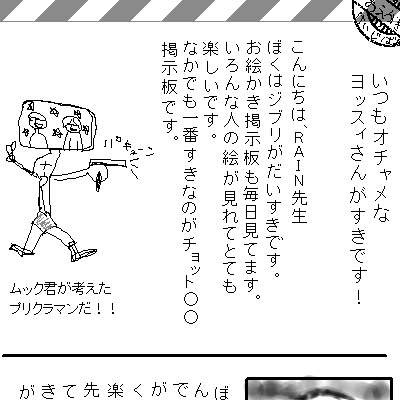 いつもオチャメな
ヨッスィさんがすきです!
こんにちは、RAIN先生
ぼくはジブリがだいすきです。
お絵かき掲示板も毎日見てます。
いろんな人の絵が見れてとても
楽しいです。
なかでも一番すきなのがチョット○○
掲示板です。
バキューン
ムック君が考えた
プリクラマンだ!!
ぼ
ん
で
が
く
楽
先
て
き
が